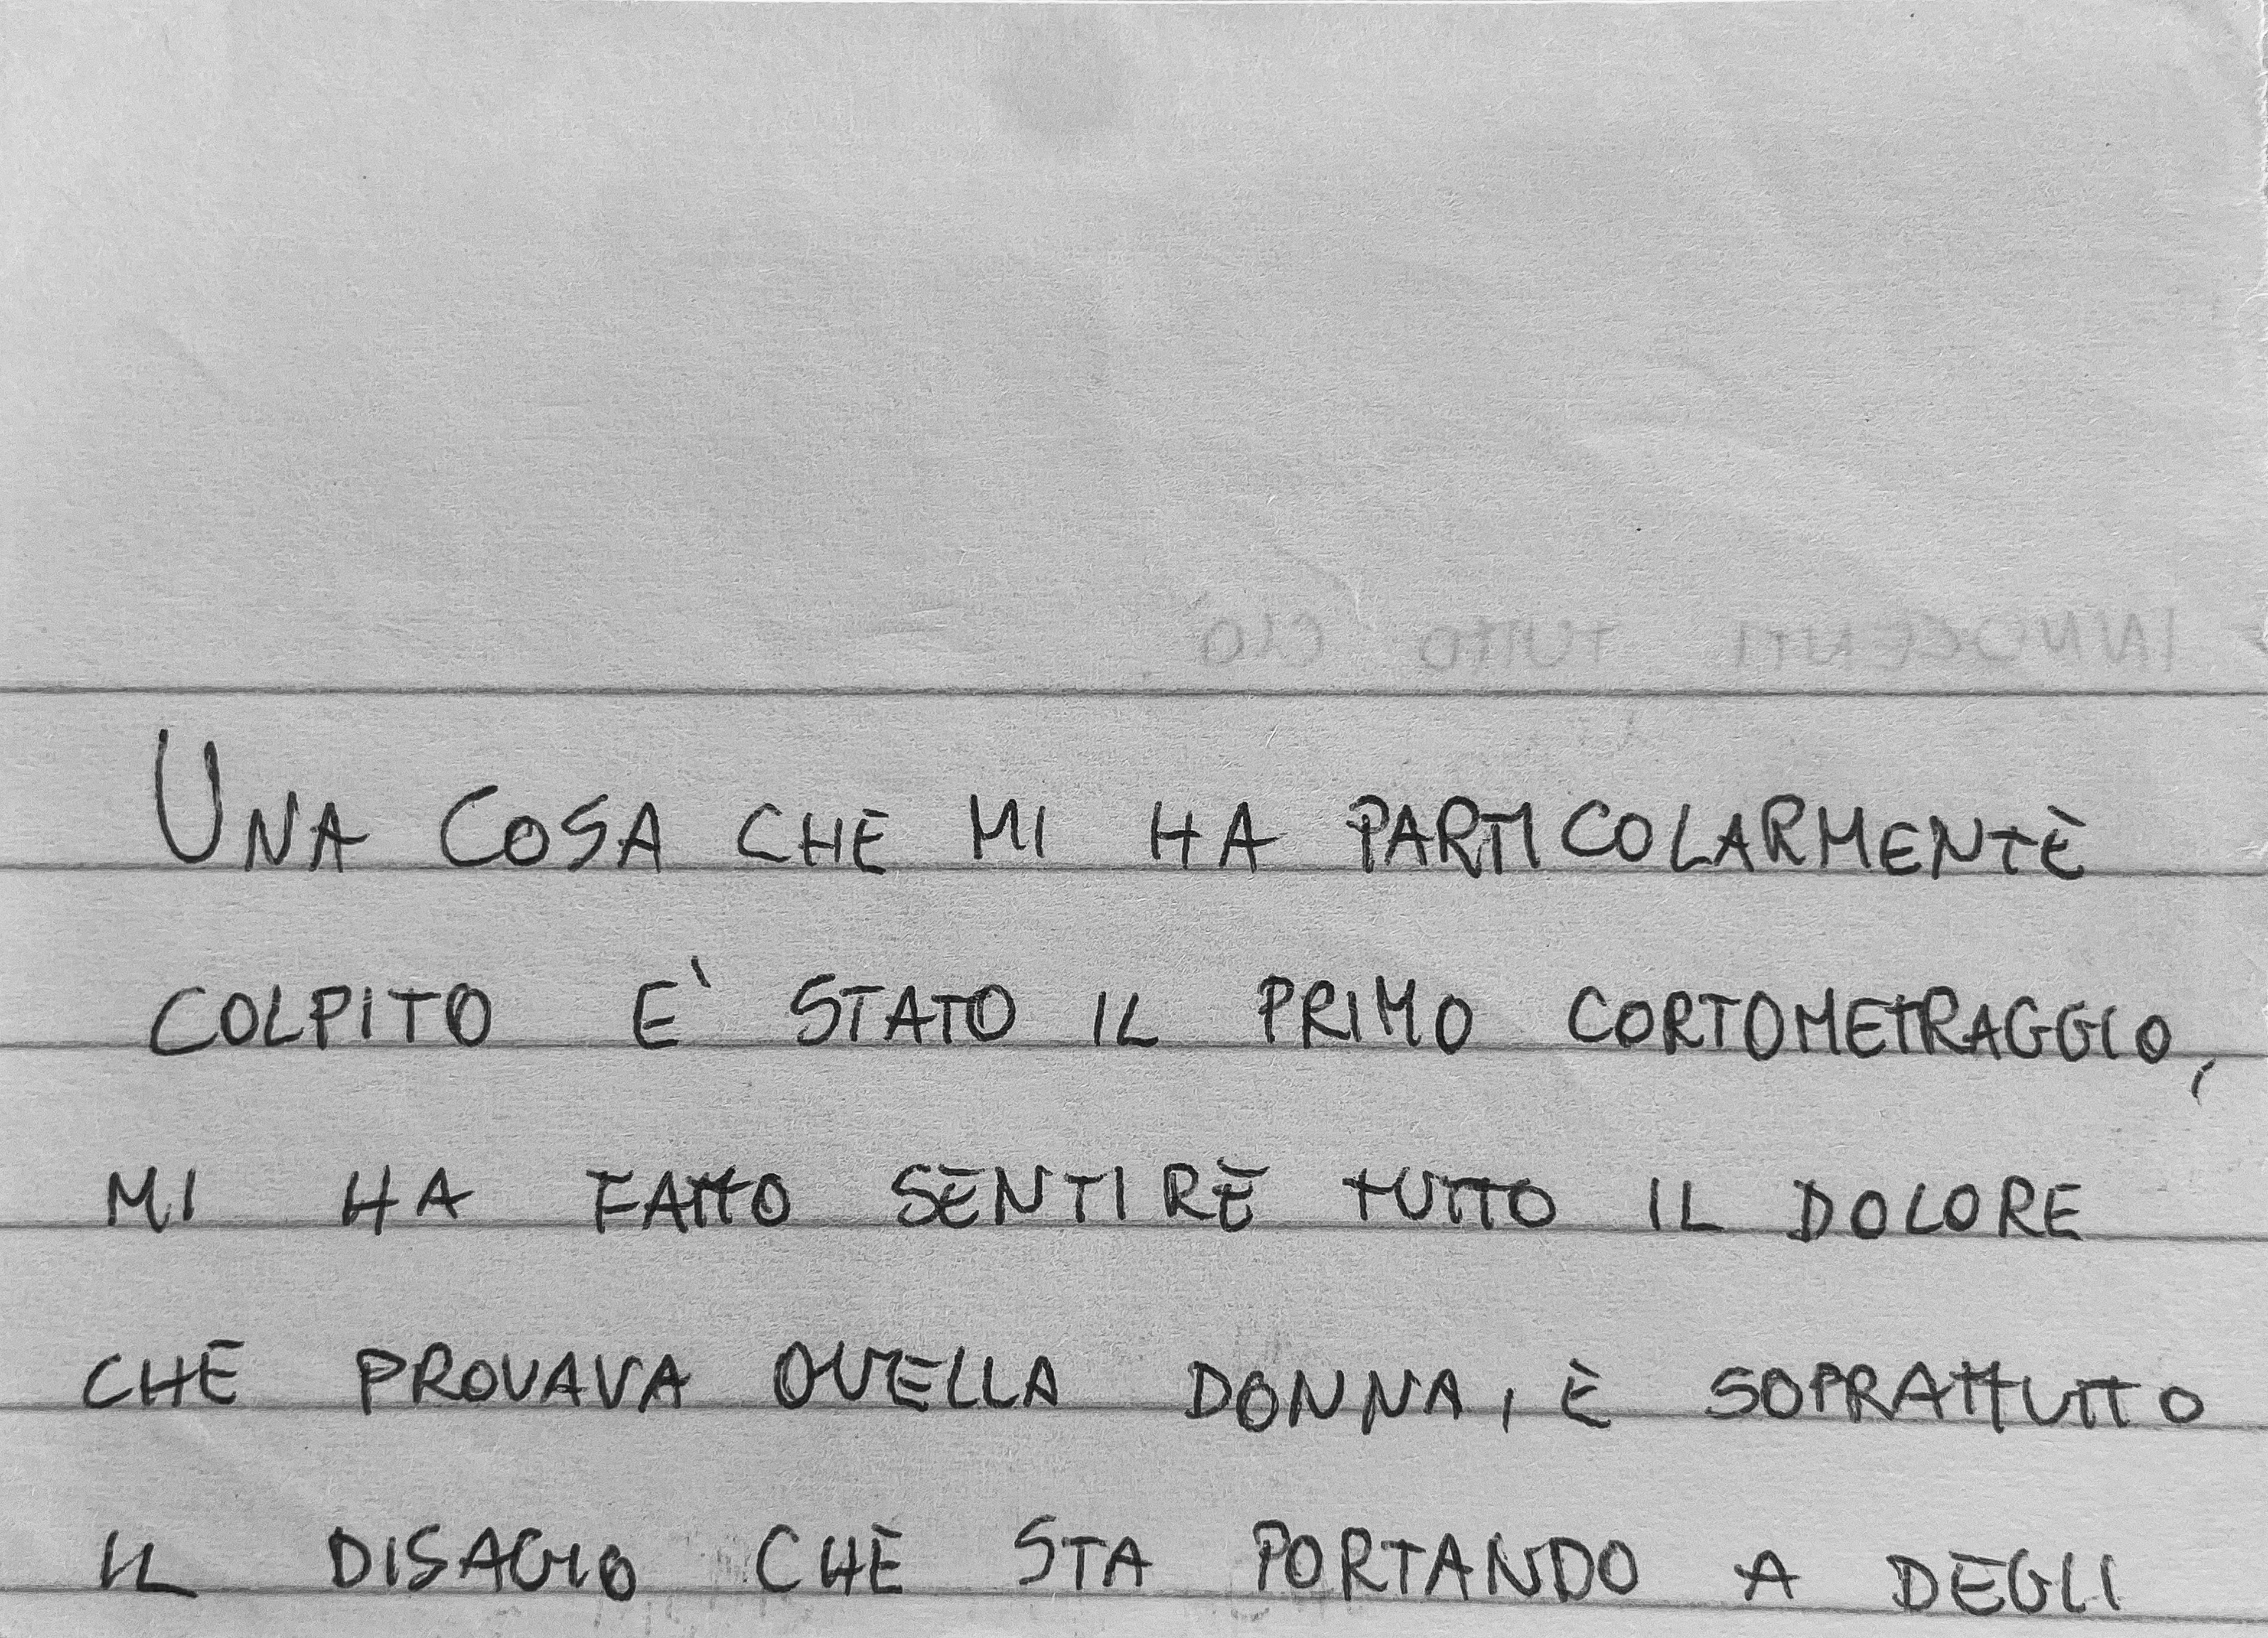 INNOCENTI TUTTO CIÒ
UNA COSA CHE MI HA PARTICOLARMENTE
COLPITO E' STATO IL PRIMO CORTOMETRAGGIO,
MI HA FATTO SENTIRE TUTTO IL DOLORE
CHE PROVAVA QUELLA DONNA, E SOPRATTUTTO
IL DISAGIO CHE STA PORTANDO A DEGLI